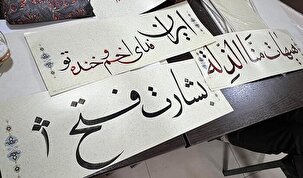 ایران
فدای اشک و خنده تو
هیهات منا الذلة
بشارت فتح